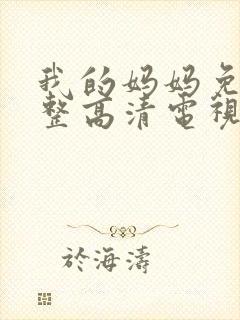 我的妈妈免
整高清電視
於海濤